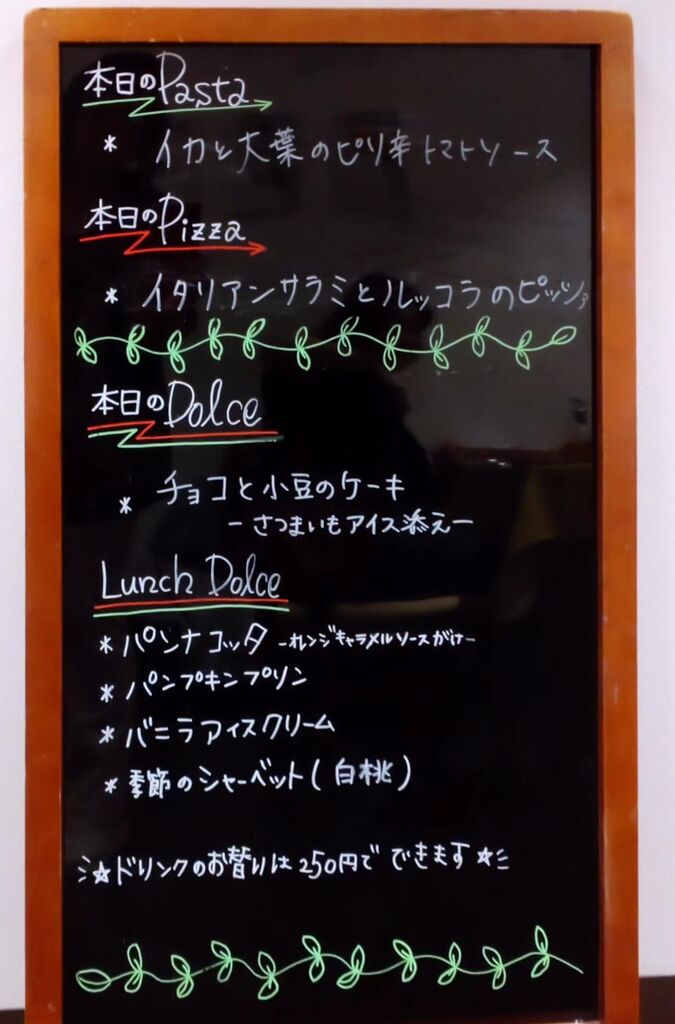 本日のPasta
* イカと大葉のピリ辛トマトソース
本日のPizza
* イタリアンサラミとルッコラのピッツァ
本日のDolce
* チョコと小豆のケーキ
-さつまいもアイス添え-
Lunch Dolce
* パンナコッタ -オレンジキャラメルソースがけ-
* パンプキンプリン
* バニラアイスクリーム
* 季節のシャーベット(白桃)
☆ドリンクのお替りは250円でできます☆